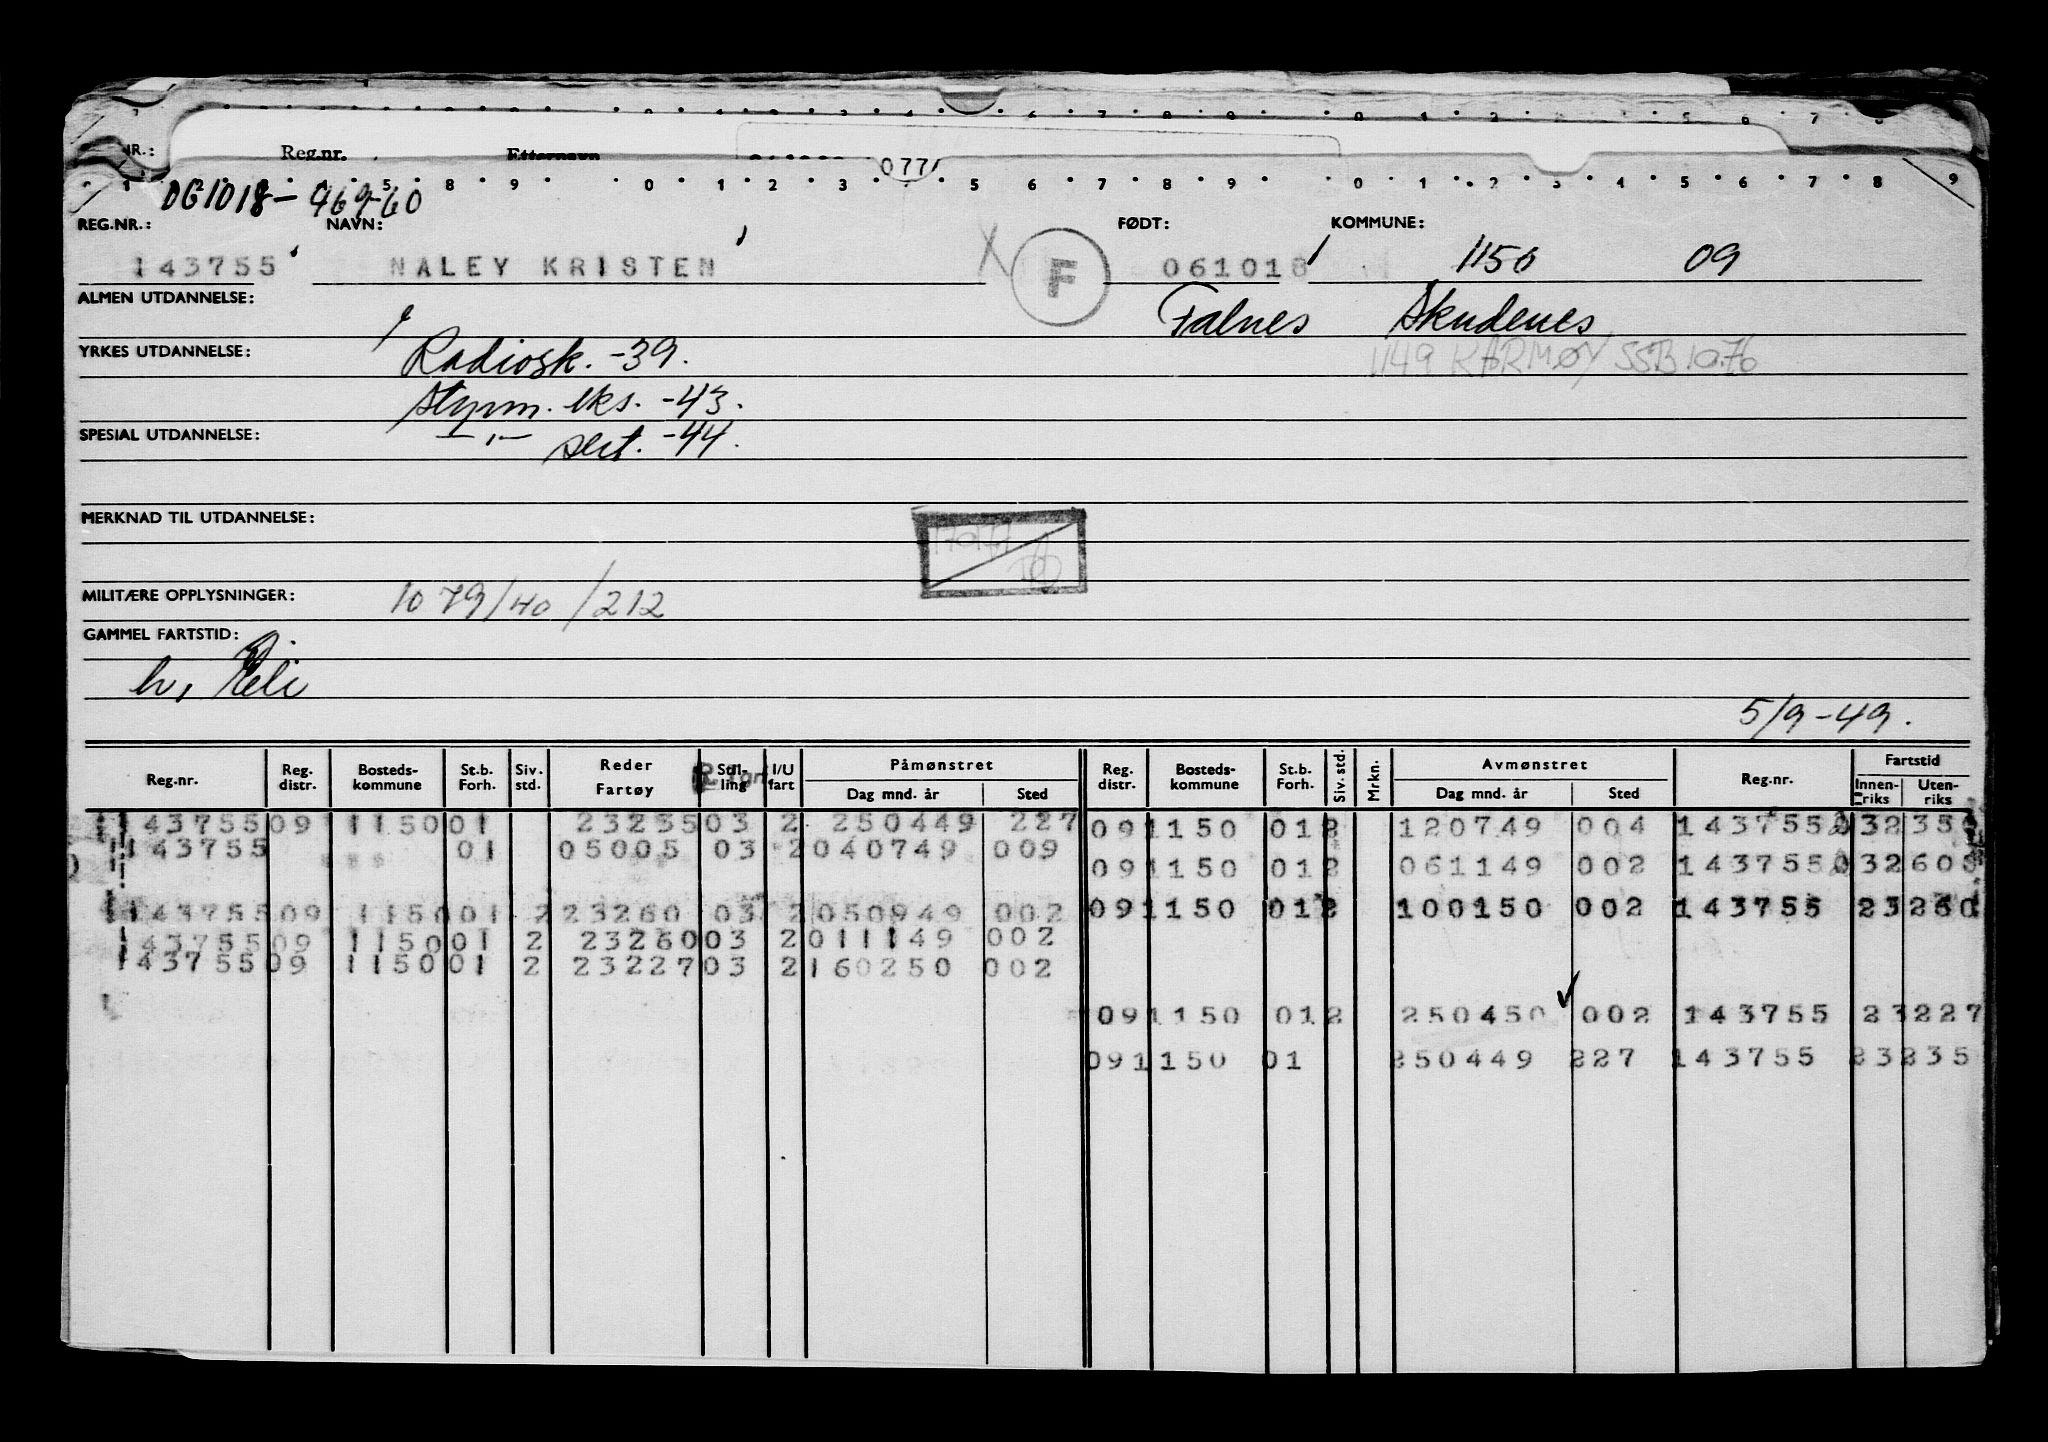 NR.: Reg.nr. Etternavn
077
061018-46960
REG.NR.: NAVN: FØDT: KOMMUNE:
143755 NALEY KRISTEN F 061018 1150 09
ALMEN UTDANNELSE: Falnes Skudenes
YRKES UTDANNELSE: Radiosk. -39. 1149 KARMØY SSB 10.76
Styrm. eks. -43.
SPESIAL UTDANNELSE: —"— sert. -44.
MERKNAD TIL UTDANNELSE:
MILITÆRE OPPLYSNINGER: 1079/40/212
GAMMEL FARTSTID:
h, Eli
5/9-49.
Reg.nr. Reg. distr. Bosteds- kommune St.b. Forh. Siv. std. Reder Fartøy Stil- ling I/U fart Påmønstret Dag mnd. år Sted Reg. distr. Bosteds- kommune St.b. Forh. Siv. std. Mrkn. Avmønstret Dag mnd. år Sted Reg.nr. Fartstid Innen- riks Uten- riks
143755 09 1150 01 23235 03 2 250449 227 09 1150 01 2 120749 004 143755
143755 01 05005 03 2 040749 009
09 1150 01 2 061149 002 143755
143755 09 1150 01 2 23260 03 2 050949 002 09 1150 01 2 100150 002 143755 23260
143755 09 1150 01 2 23260 03 2 011149 002
143755 09 1150 01 2 23227 03 2 160250 002
09 1150 01 2 250450 002 143755 23227
09 1150 01 250449 227 143755 23235